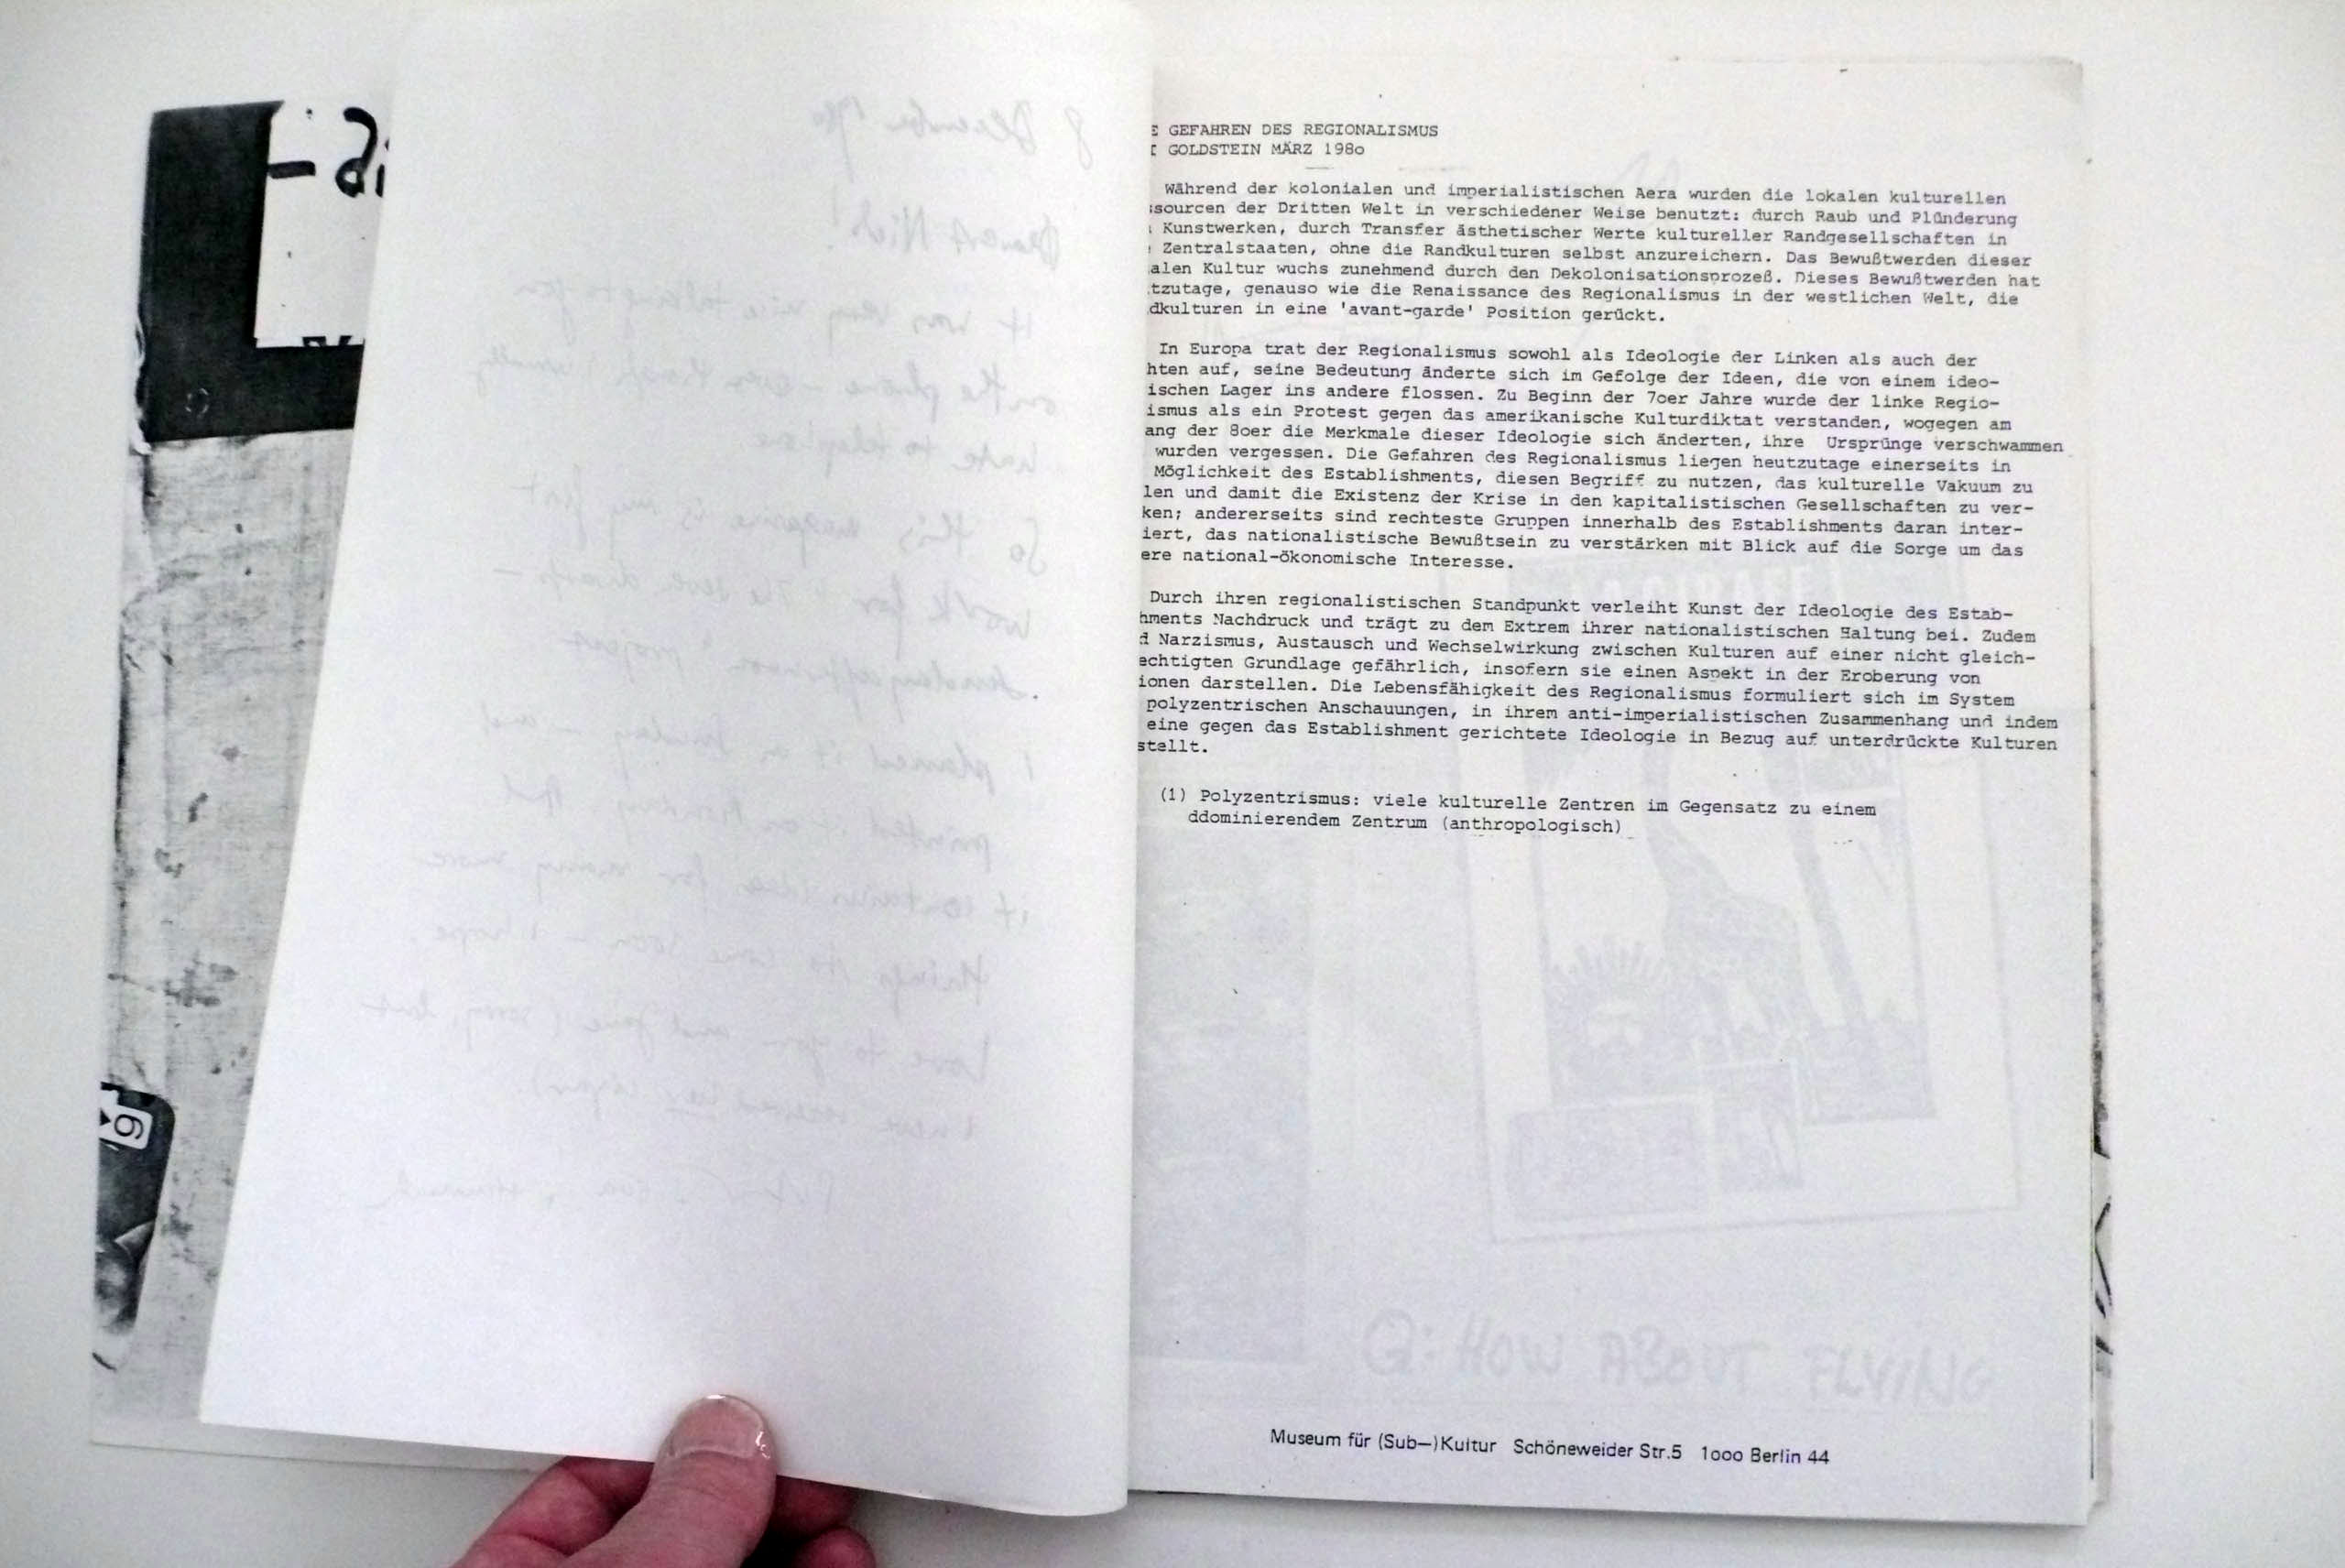 -di
6
8 December 1980
Dearest Nick!
It was very nice talking to you
on the phone – even though I usually
hate to telephone
So this magazine is my first
work for the seven dwarfs –
project
I planned it on Sunday – and
printed it on Monday
it contains idea for many more
things to come soon – I hope
Love to you and Jane (sorry, but
I never
E GEFAHREN DES REGIONALISMUS
I GOLDSTEIN MÄRZ 198o
Während der kolonialen und imperialistischen Aera wurden die lokalen kulturellen
ssourcen der Dritten Welt in verschiedener Weise benutzt: durch Raub und Plünderung
Kunstwerken, durch Transfer ästhetischer Werte kultureller Randgesellschaften in
Zentralstaaten, ohne die Randkulturen selbst anzureichern. Das Bewußtwerden dieser
alen Kultur wuchs zunehmend durch den Dekolonisationsprozeß. Dieses Bewußtwerden hat
tzutage, genauso wie die Renaissance des Regionalismus in der westlichen Welt, die
dkulturen in eine 'avant-garde' Position gerückt.
In Europa trat der Regionalismus sowohl als Ideologie der Linken als auch der
hten auf, seine Bedeutung änderte sich im Gefolge der Ideen, die von einem ideo-
ischen Lager ins andere flossen. Zu Beginn der 7oer Jahre wurde der linke Regio-
ismus als ein Protest gegen das amerikanische Kulturdiktat verstanden, wogegen am
ang der 8oer die Merkmale dieser Ideologie sich änderten, ihre Ursprünge verschwammen
wurden vergessen. Die Gefahren des Regionalismus liegen heutzutage einerseits in
Möglichkeit des Establishments, diesen Begriff zu nutzen, das kulturelle Vakuum zu
len und damit die Existenz der Krise in den kapitalistischen Gesellschaften zu ver-
ken; andererseits sind rechteste Gruppen innerhalb des Establishments daran inter-
iert, das nationalistische Bewußtsein zu verstärken mit Blick auf die Sorge um das
ere national-ökonomische Interesse.
Durch ihren regionalistischen Standpunkt verleiht Kunst der Ideologie des Estab-
hments Nachdruck und trägt zu dem Extrem ihrer nationalistischen Haltung bei. Zudem
d Narzismus, Austausch und Wechselwirkung zwischen Kulturen auf einer nicht gleich-
echtigten Grundlage gefährlich, insofern sie einen Aspekt in der Eroberung von
ionen darstellen. Die Lebensfähigkeit des Regionalismus formuliert sich im System
polyzentrischen Anschauungen, in ihrem anti-imperialistischen Zusammenhang und indem
eine gegen das Establishment gerichtete Ideologie in Bezug auf unterdrückte Kulturen
stellt.
(1) Polyzentrismus: viele kulturelle Zentren im Gegensatz zu einem
ddominierendem Zentrum (anthropologisch)
Q: HOW ABOUT FLYING
Museum für (Sub-)Kultur Schöneweider Str.5 1ooo Berlin 44